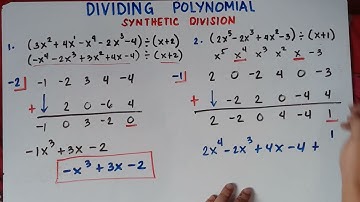 DIVIDING POLYNOMIAL
SYNTHETIC DIVISION
1. (3x² + 4x¹ - x⁴ - 2x³ - 4) ÷ (x+2)
(-x⁴ - 2x³ + 3x² + 4x - 4) ÷ (x+2)
-2| -1 -2 3 4 -4
+ ↓ 2 0 -6 4
-1 0 3 -2 0
-1x³ + 3x - 2
-x³ + 3x - 2
2. (2x⁵ - 2x³ + 4x² - 3) ÷ (x+1)
x⁵ x⁴ x³ x² x -3
-1| 2 0 -2 4 0 -3
+ ↓ -2 2 0 -4 4
2 -2 0 4 -4 1
2x⁴ - 2x³ + 4x - 4 + 1